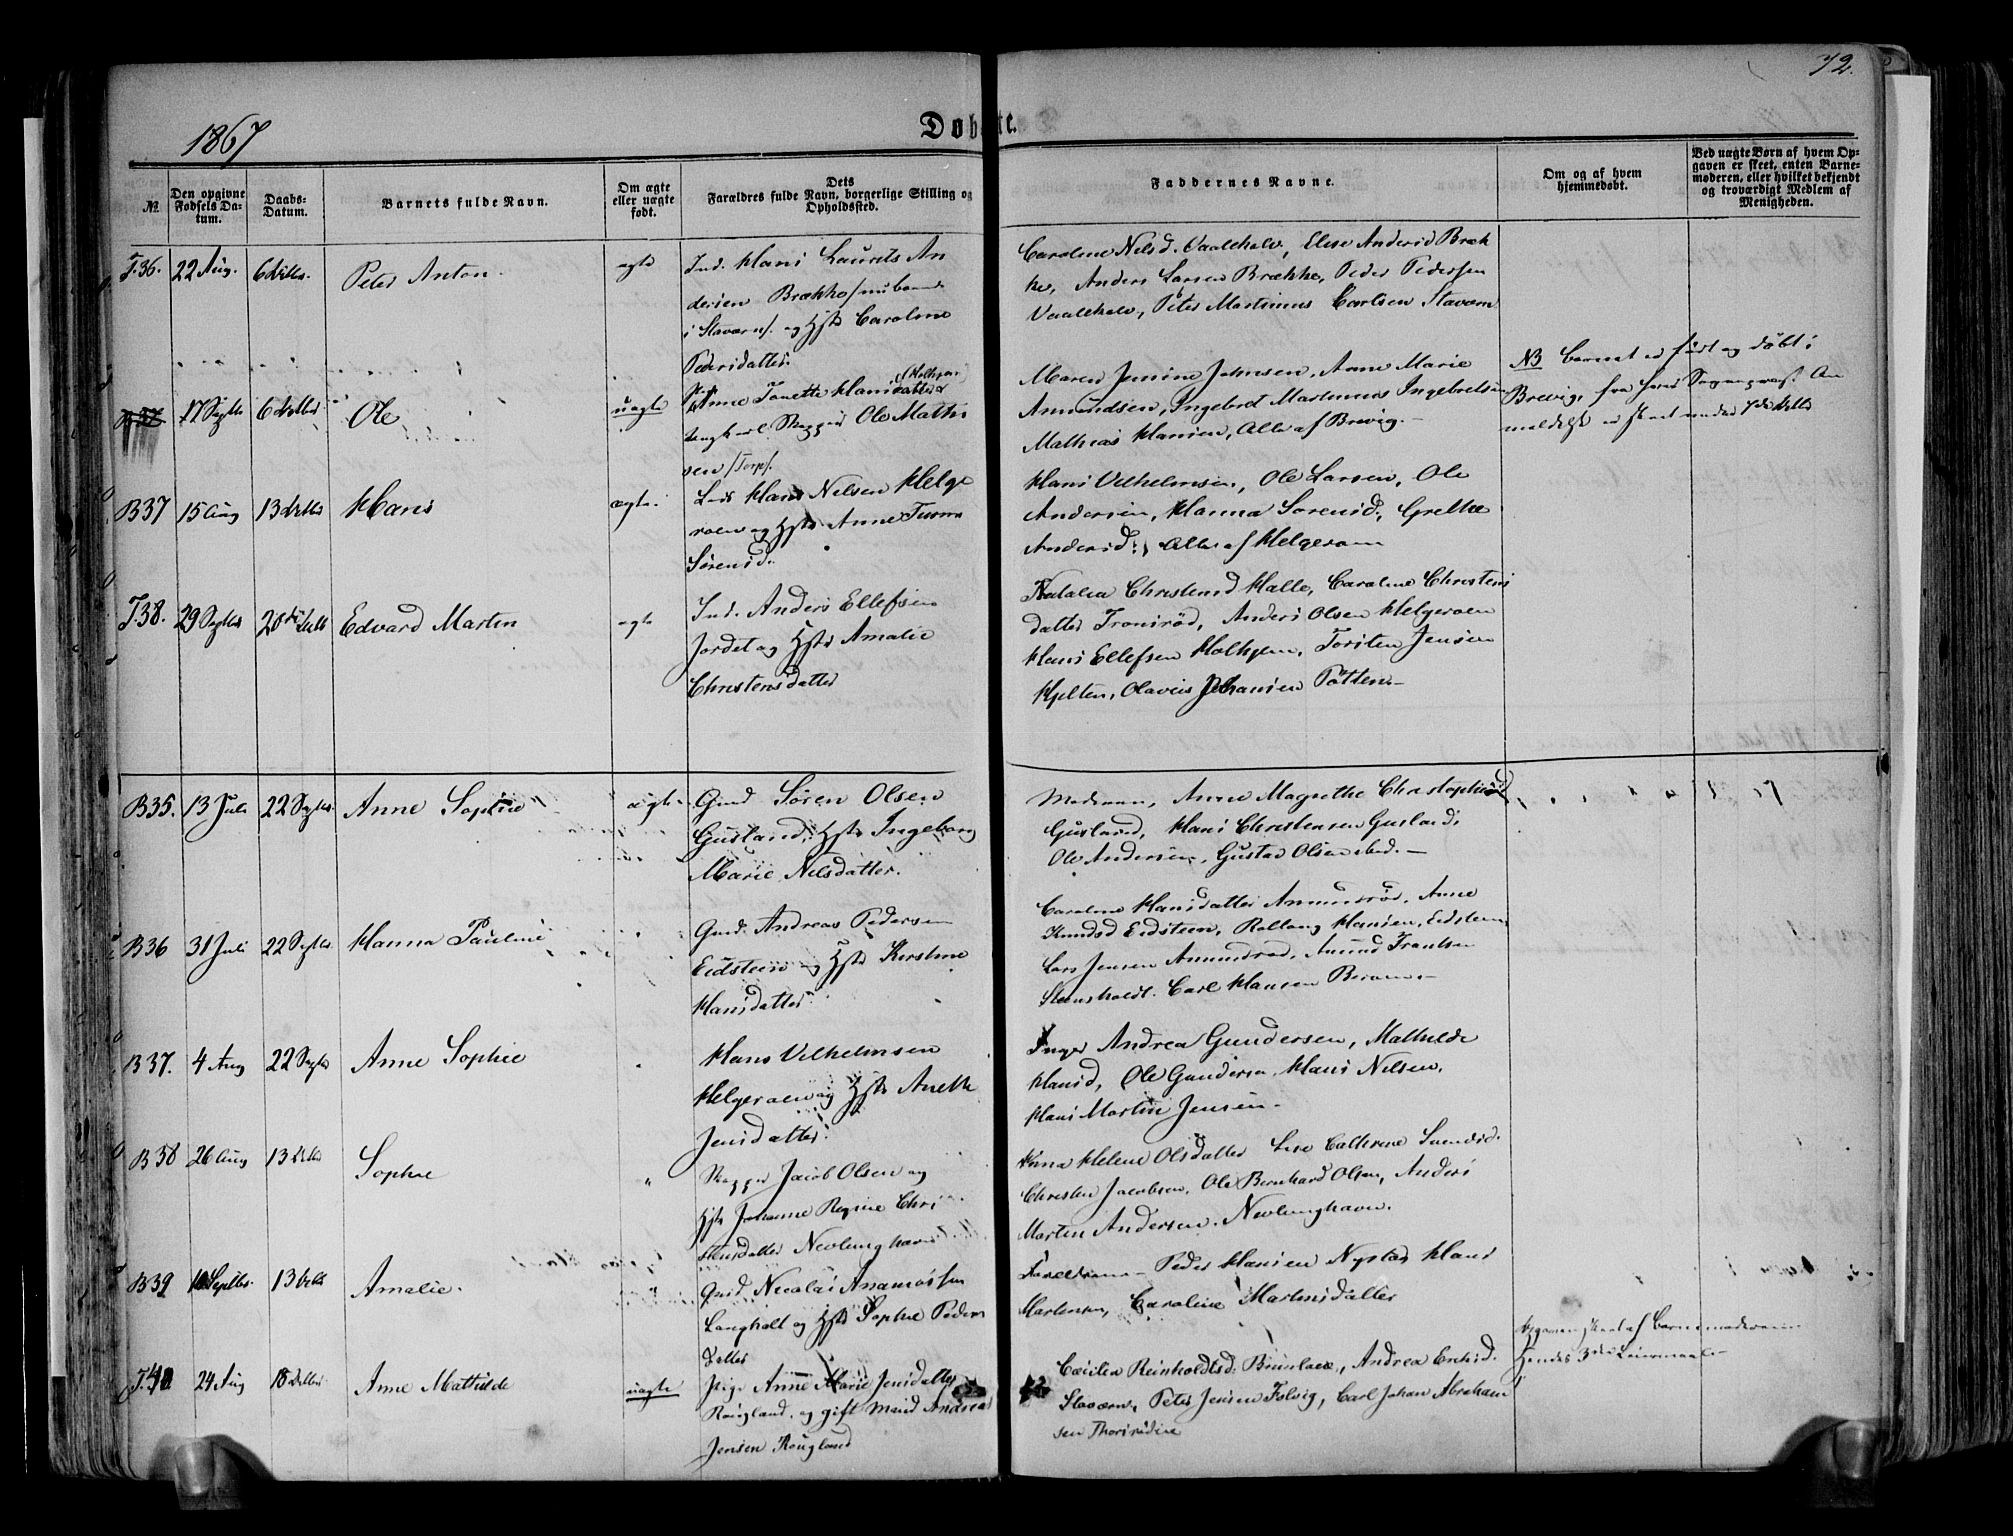 72.
1867
Døbte.
No.
Den opgivne
Fødsels Da-
tum.
Daabs-
Datum.
Barnets fulde Navn.
Om ægte
eller uægte
født.
Dets
Forældres fulde Navn, borgerlige Stilling og
Opholdssted.
Faddernes Navne.
Om og af hvem
hjemmedøbt.
Ved uægte Børn af hvem Op-
gaven er skeet, enten Barne-
moderen, eller hvilket bekjendt
og troværdigt Medlem af
Menigheden.
T.36. 22 Aug. Peter Anton. ægte
Ind. Hans Laurits An
dersen Brække
i Stavern/. og Hst Caroline
Pedersdatter.
Caroline Nilsd. Vaaleholv, Elise Andersd Bræk
ke, Anders Larsen Brække, Peder Pedersen
Vaaleholv, Peter Martinus Carlsen Stavern
17 Septbr Ole uægte
Anne Tonette Hansdatter
Ole Mathi
sen /Torp/.
Maren Jensine Johnsen, Anne Marie
Amundsen, Ingebret Martinus Ingebretsen
Mathias Hansen, Alle af Brevig.-
NB Barnet er født og døbt i
Brevig, fra hvis Sogneprest An
B37 15 Aug Hans ægte.
Hans Nilsen Helge
roen og Hst Anne
Sørensd.
Hans Vilhelmsen, Ole Larsen, Ole
Andersen, Hanna Sørensd., Grethe
Andersd., Alle af Helgeroen
T.38. 29 Septbr Edvard Martin ægte
Ind. Anders Ellefsen
Jordet og Hst Amalie
Christensdatter
Natalia Christensd Halle, Caroline Christens
datter Tronsrød, Anders Olsen Helgeroen
Hans Ellefsen Holtjem, Torsten Jensen
Olaves Johansen Tøtten.-
B35. 13 Juli 22 Septbr. Anne Sophie ægte
Gmd Søren Olsen
Gusland, Hst Ingeborg
Marie Nilsdatter.
Moderen, Anne Magrethe Christophersd
Gusland, Hans Christensen Gusland,
Ole Andersen, Gustav Olsen ibid.-
B36 31 Juli 22 Septbr Hanna Pauline
Gmd. Andreas Pedersen
Eidsteen og Hst Kirstine
Hansdatter
Caroline Hansdatter Amundrød, Anne
Knudsd Eidsteen, Hansen, Eidsteen
Lars Jensen Amundrød, Amund Frantsen
Steensholdt. Carl Hansen Beroen.-
B37. 4 Aug 22 Septbr Anne Sophie
Hans Vilhelmsen
Helgeroen og Hst Anethe
Jensdatter.
Inger Andrea Gundersen, Mathilde
Hansd, Ole Gundersen, Hans Nilsen,
Hans Martin Jensen-
B38 26 Aug Sophie "
Jacob Olsen og
Hst Johanne Regine Chri
stensdatter Nevlunghavn
Anna Helene Olsdatter Lise Cathrine Svendsd.
Christen Jacobsen, Ole Bernhard Olsen, Anders
Martin Andersen. Nevlunghavn.
B39 Septbr. Amalie.
Gmd Nicolai
Langholt og Hst Sophie Peders
datter
Forældrene- Peder Hansen Nystad Hans
Martensen, Caroline Martinsdatter
T.40 24 Aug Anne Mathilde uægte
Pige Anne Marie Jensdatter
Rougland, og gift Mand Andreas
Jensen Rougland
Cecilia Reinholdtsd. Brunlaae, Andrea Ericsd.
Stavern, Peter Jensen Foldvig, Carl Johan Abraham
sen
Opgaven skeet af Barnemoderen
Hendes 3die Leiermaal-